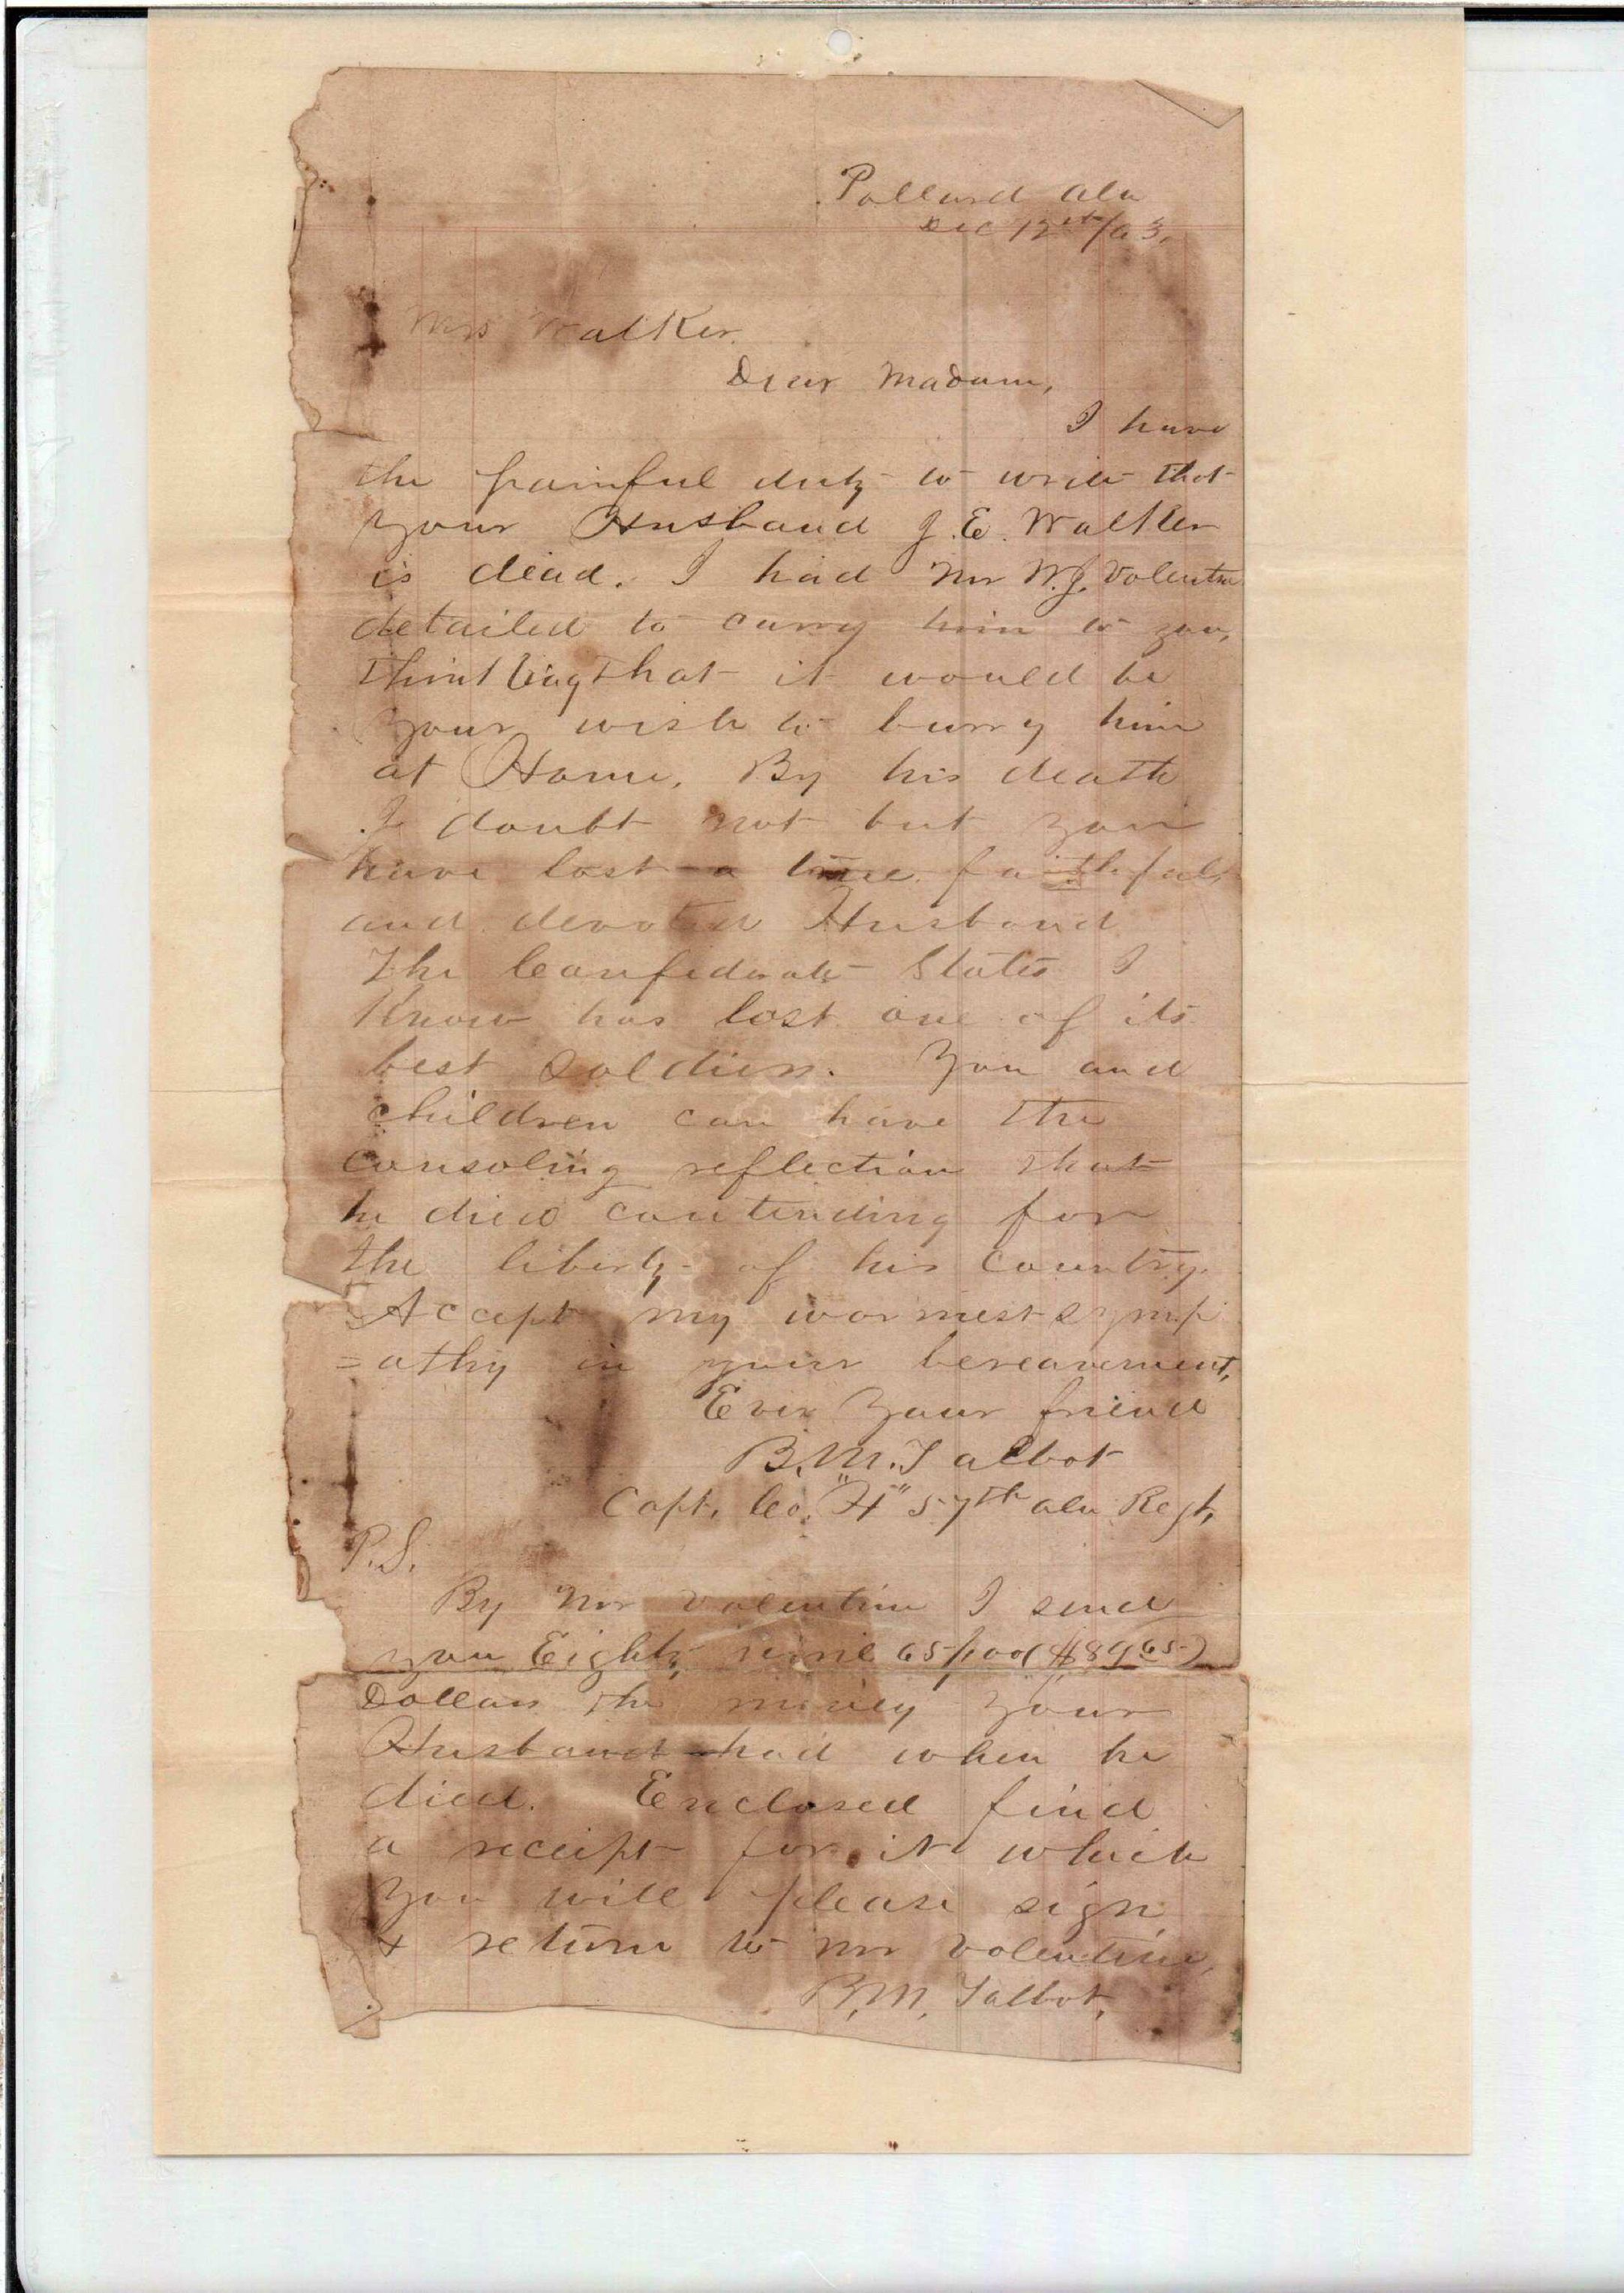 Pollard Ala
Dec 12th/63,
Mrs Walker.
Dear Madam,
I have
the painful duty to write that
your Husband J.E. Walker
is dead. I had Mr W.J. Valentine
detailed to carry him to you,
thinking that it would be
your wish to burry him
at Home. By his death
I doubt not but you
have lost a true faithful
and devoted Husband
The Confederate States I
Know has lost one of its
best soldiers. You and
children can have the
consoling reflection that
he died contending for
the liberty of his Country.
Accept my warmest symp
=athy in your bereavement,
Ever your friend
B.M. Talbot
Capt. Co. "H" 57th Ala Regt,
P.S.
By Mr Valentine I send
you Eighty nine 65/100 ($89 65)
Dollars the money your
Husband had when he
died. Enclosed find
a receipt for it which
you will please sign
& return to Mr Valentine,
B.M. Talbot,